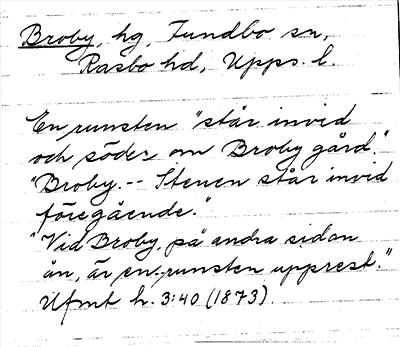 Broby, hg, Funbo sn,
Rasbo hd, Upps. l.
En runsten "står invid
och söder om Broby gård."
"Broby. -- Stenen står invid
föregående."
"Vid Broby, på andra sidan
ån, är en runsten upprest."
Ufmt h. 3:40 (1873).